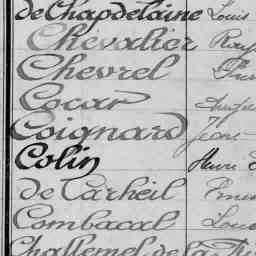 de Chapdelaine Louis
Chevalier
Chevrel
Cocar
Coignard Jean
Colin Henri
de Carheil
Combacal
Challemel de la